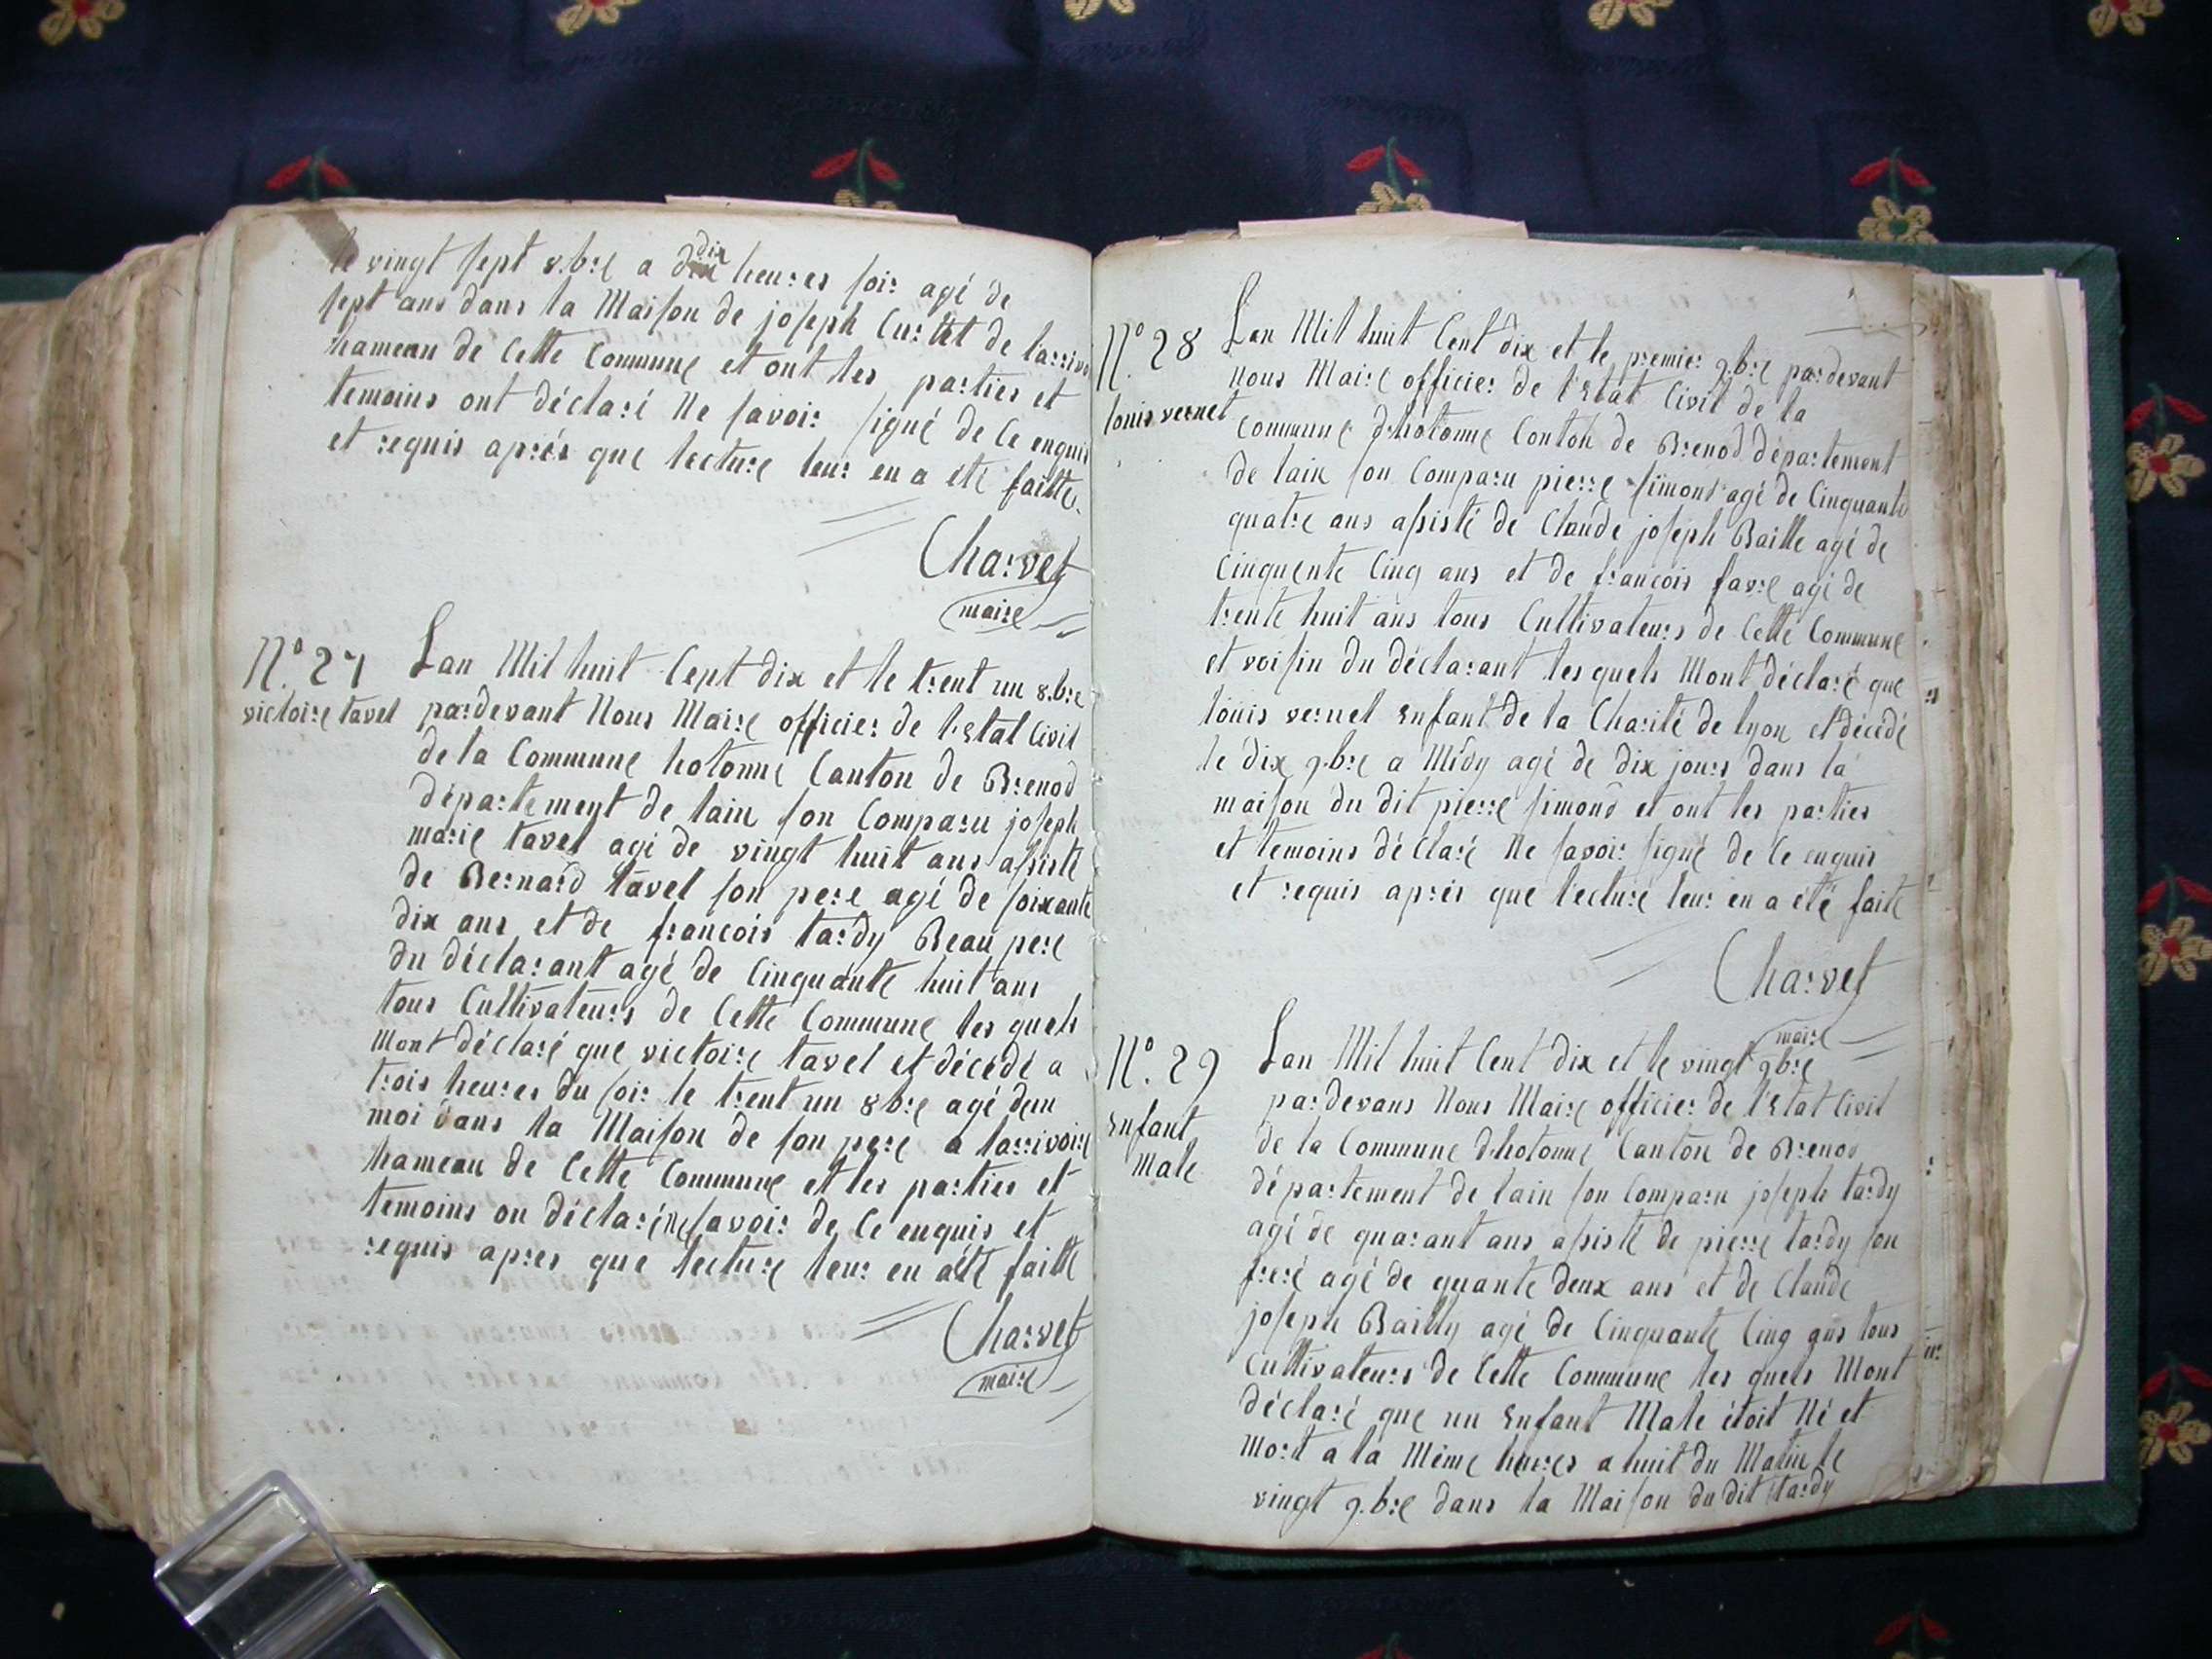 le vingt sept 8.bre a dix dix heures soir agé de
sept ans dans la Maison de joseph Curtet de larrivo
hameau de Cette Commune et ont les parties et
temoins ont déclaré Ne savoir signé de Ce enquis
et requis aprés que lecture leur en a eté faitte
Charvet
maire
N.º 27
victoire tavel
Lan Mil huit Cept dix et le trent un 8.bre
pardevant Nous Maire officier de l'Estat Civil
de la Commune hotonne Canton de Brenod
département de lain son Comparu joseph
marie tavel agé de vingt huit ans assisté
de Bernard tavel son pere agé de soixante
dix ans et de francois tardy Beau pere
du déclarant agé de Cinquante huit ans
tous Cultivateurs de Cette Commune les quels
Mont déclaré que victoire tavel et décédé a
trois heures du soir le trent un 8bre agé dun
moi dans la Maison de son pere a larrivoire
hameau de Cette Commune et les parties et
temoins on déclaré ne savoir de Ce enquis et
requis apres que lecture leur en a été faitte
Charvet
maire
N.º 28
louis vernet
Lan Mil huit Cent dix et le premier 9.bre pardevant
Nous Maire officier de l'Estat Civil de la
Commune d.hotonne Conton de Brenod département
de lain son Comparu pierre simond agé de Cinquante
quatre ans assisté de Claude joseph Baille agé de
Cinquente Cinq ans et de francois favre agé de
trente huit ans tous Cultivateurs de Cette Commune
et voisin du déclarant les quels Mont déclaré que
louis vernet Enfant de la Charité de lyon et décédé
le dix 9.bre a Midy agé de dix jours dans la
maison du dit pierre simond et ont les parties
et temoins déclaré Ne savoir signé de Ce enquis
et requis aprés que lecture leur en a été faite
Charvet
maire
N.º 29
Enfant
Male
Lan Mil huit Cent dix et le vingt 9bre
pardevans Nous Maire officier de l'Estat Civil
de la Commune d.hotonne Canton de Brenod
département de lain son Comparu joseph tardy
agé de quarant ans assisté de pierre tardy son
frere agé de quante deux ans et de Claude
joseph Bailly agé de Cinquante Cinq ans tous
Cultivateurs de Cette Commune les quels Mont
déclaré que un Enfant Male étoit Né et
Mort a la Même heures a huit du Matin le
vingt 9.bre dans la Maison du dit tardy